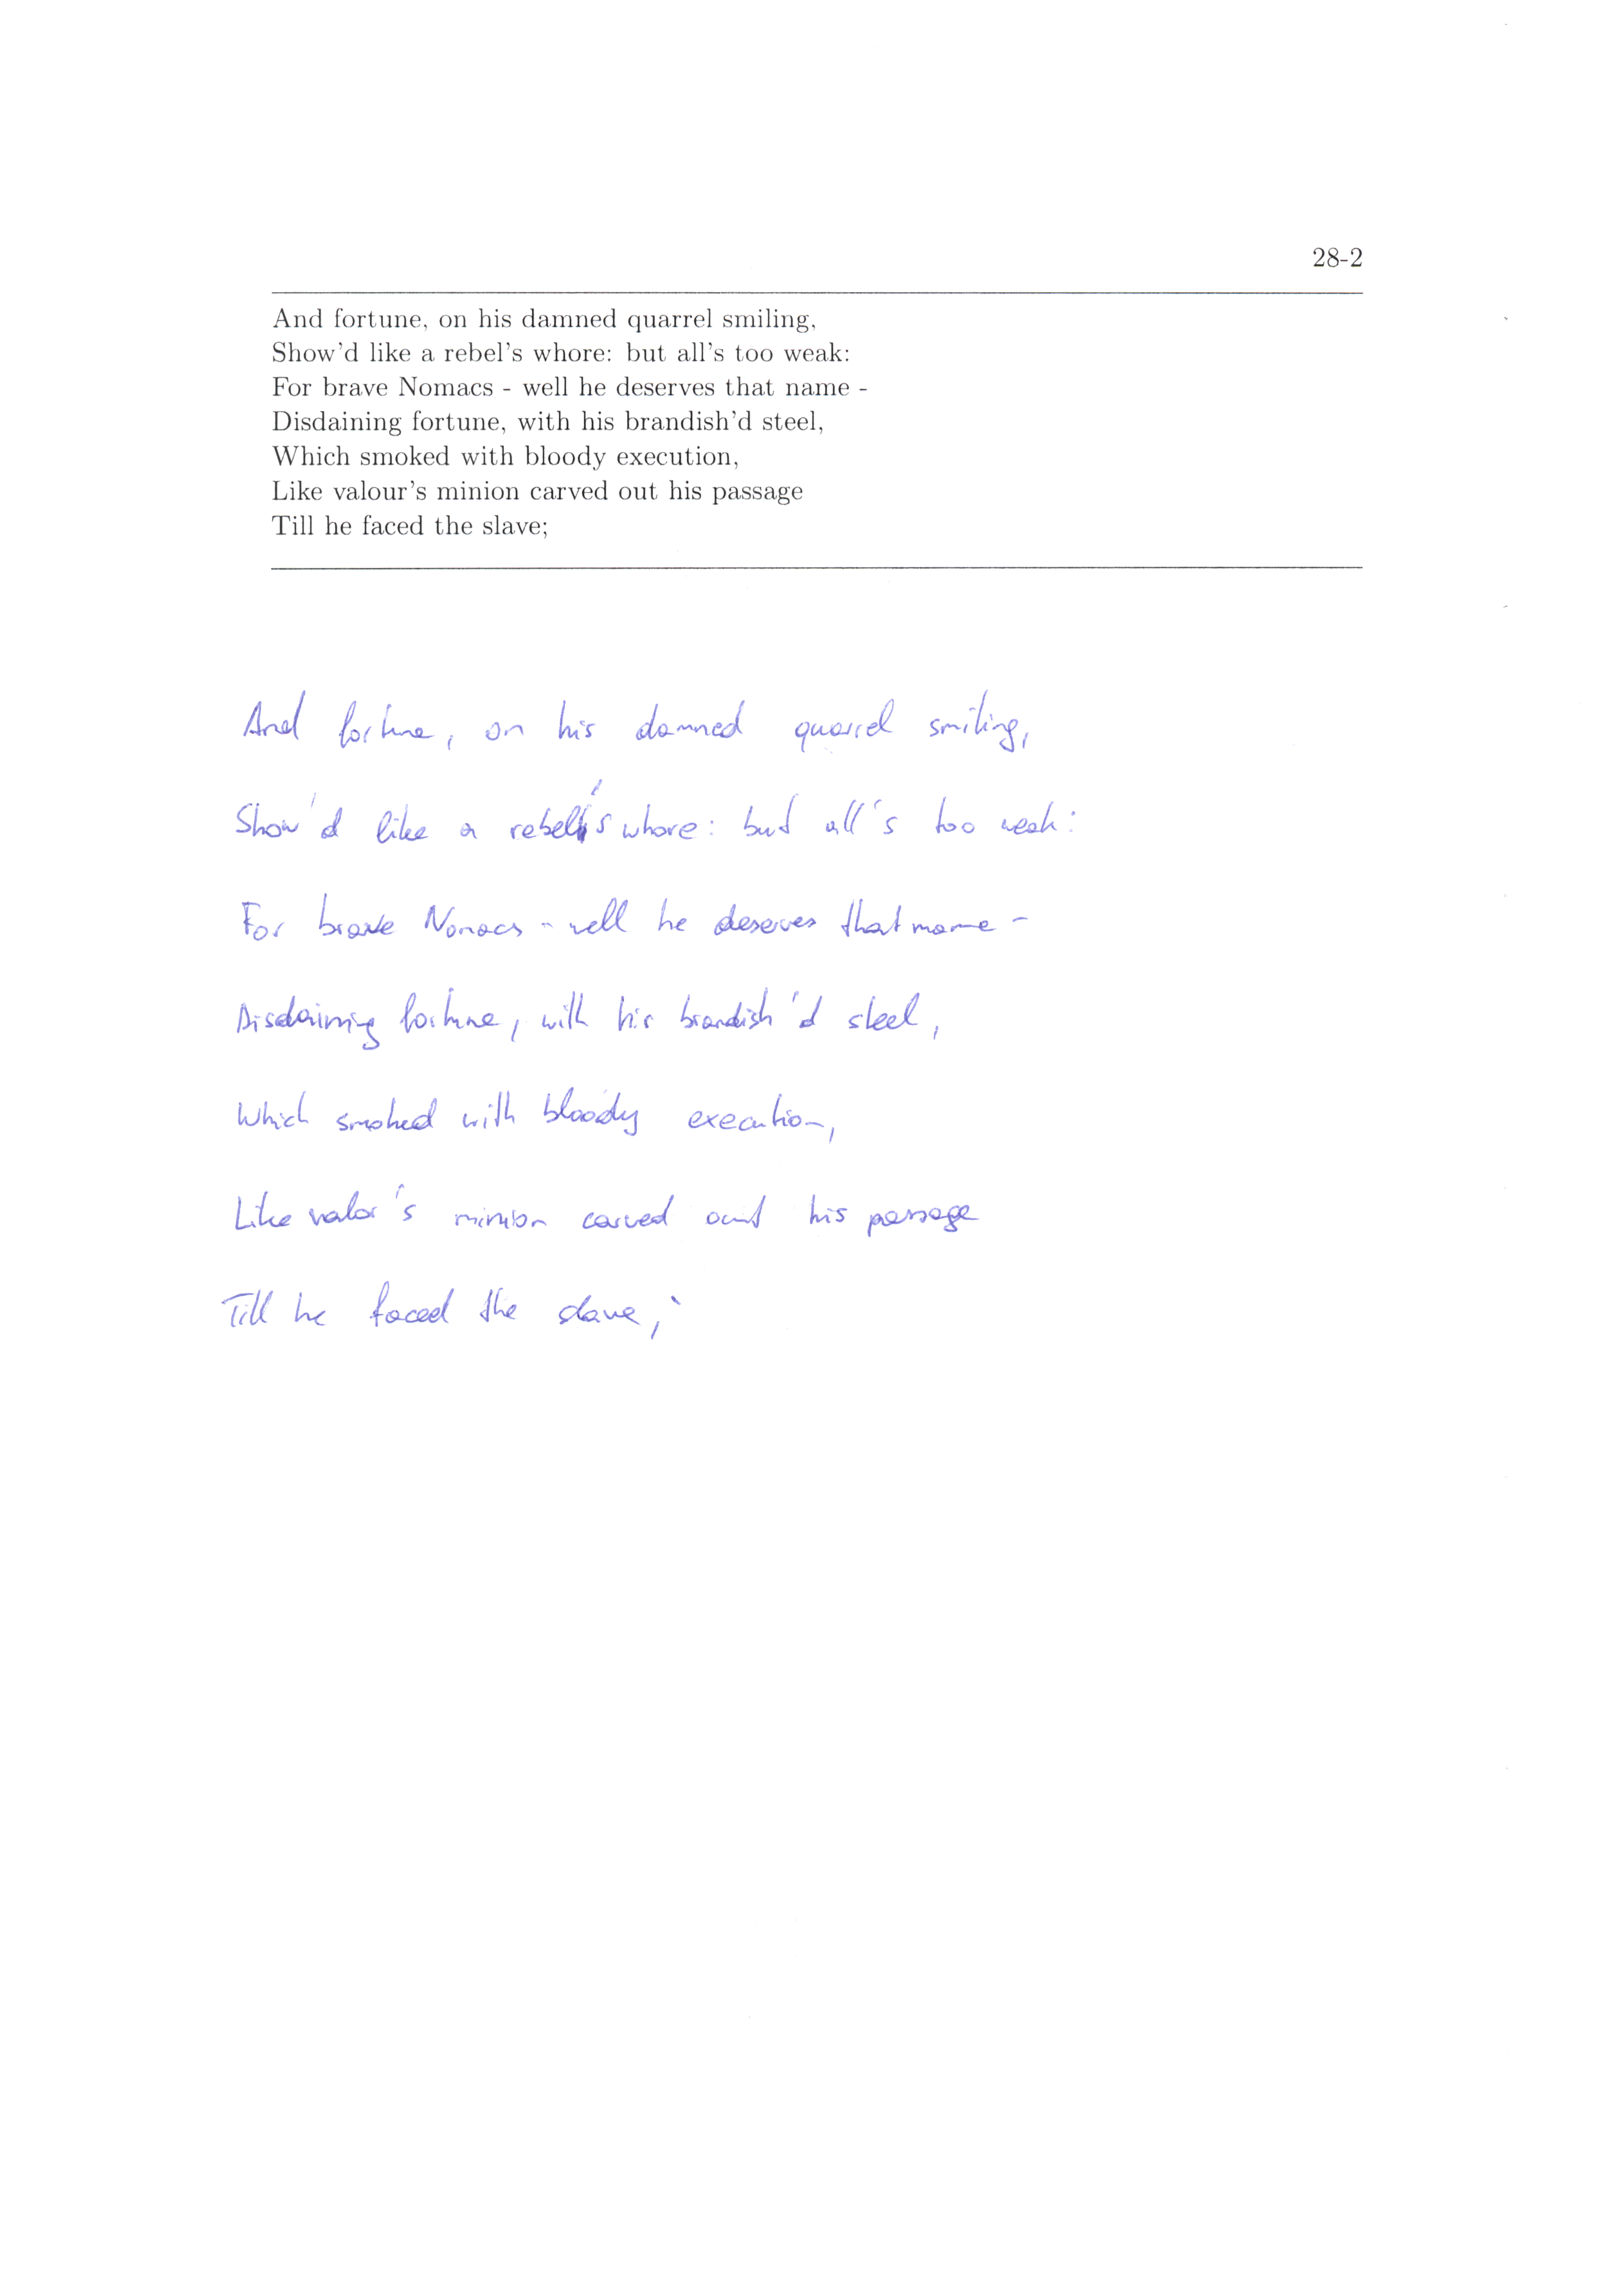 28-2
And fortune, on his damned quarrel smiling,
Show'd like a rebel's whore: but all's too weak:
For brave Nomacs - well he deserves that name -
Disdaining fortune, with his brandish'd steel,
Which smoked with bloody execution,
Like valour's minion carved out his passage
Till he faced the slave;
And fortune, on his damned quarrel smiling,
Show'd like a rebel's whore: but all's too weak:
For brave Nomacs - well he deserves that name -
Disdaining fortune, with his brandish'd steel,
Which smoked with bloody execution,
Like valor's minion carved out his passage
Till he faced the slave;